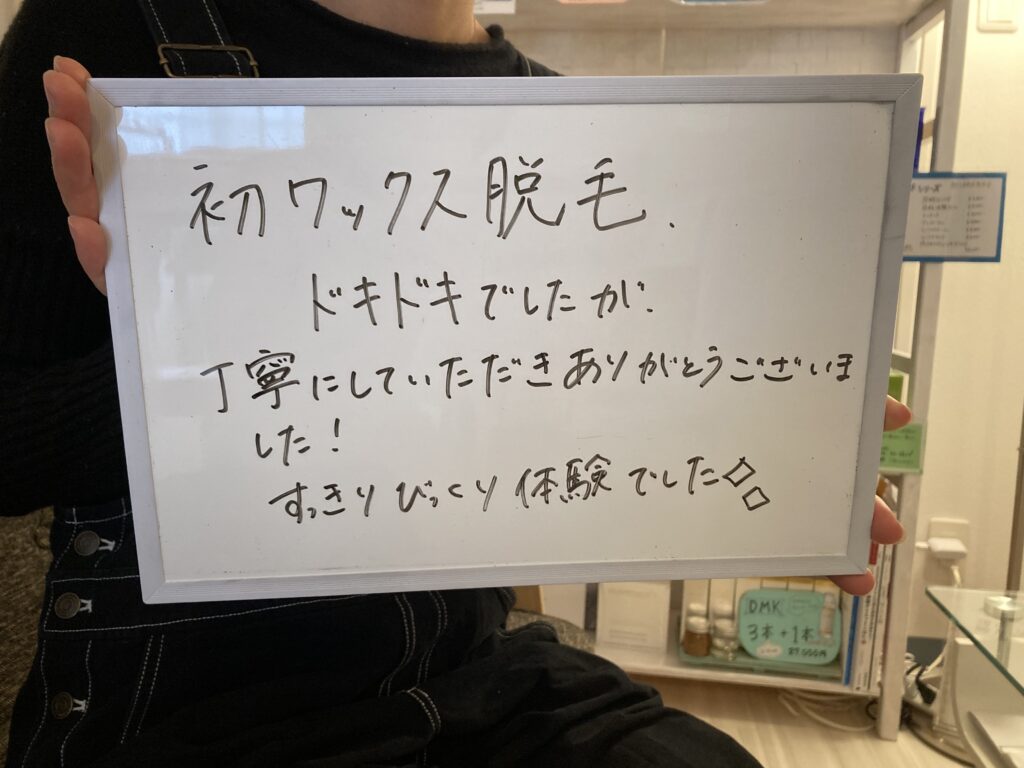 初ワックス脱毛、
ドキドキでしたが、
丁寧にしていただきありがとうございま
した！
すっきりびっくり体験でした
シリーズ
DMK
3本+1本